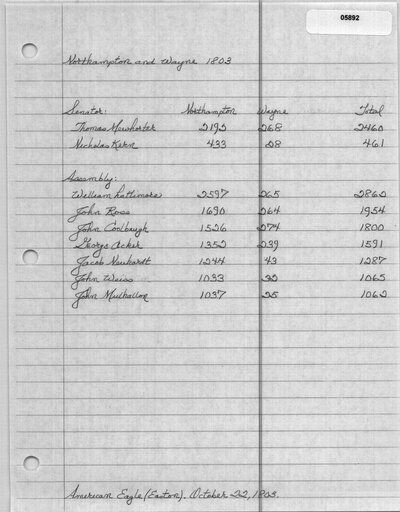 05892
Northampton and Wayne 1803
Senator: Northampton Wayne Total
Thomas Mewhorter 2192 268 2460
Nicholas Kern 433 28 461
Assembly:
William Lattimore 2597 265 2862
John Ross 1690 264 1954
John Coolbaugh 1526 274 1800
George Acker 1352 239 1591
Jacob Newhardt 1244 43 1287
John Weiss 1033 32 1065
John Mulhallon 1037 25 1062
American Eagle (Easton). October 22, 1803.